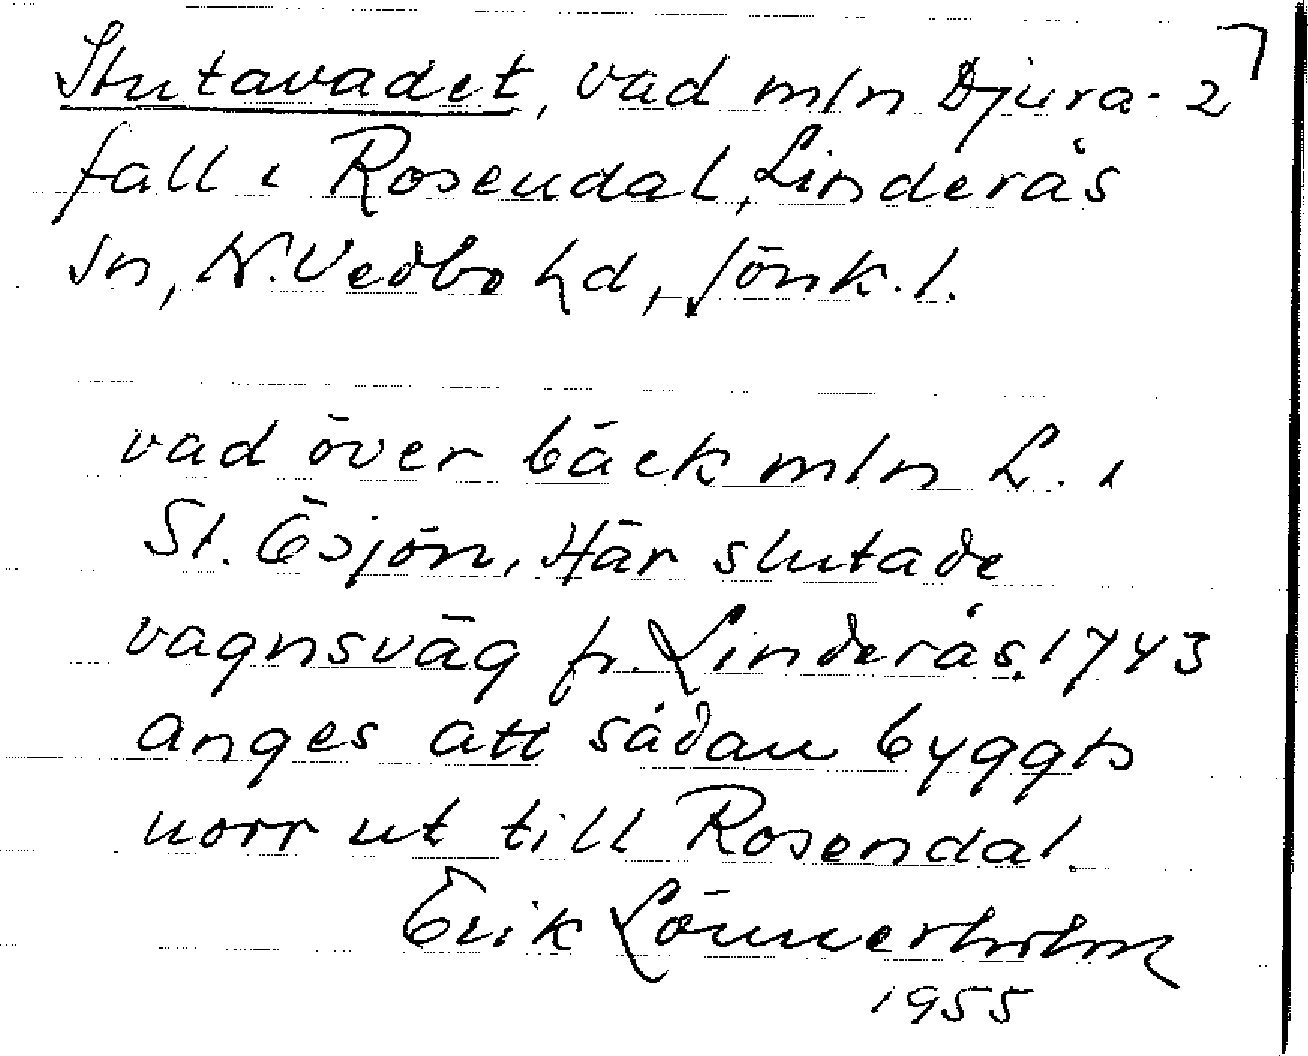 Slutavadet, vad mln Djura- 2
fall i Rosendal, Linderås
sn, N. Vedbo hd, Jönk. l.
vad över bäck mln L. i
St. Esjön. Här slutade
vagnsväg fr. Linderås. 1743
anges att sådan byggts
norr ut till Rosendal.
Erik Lönnerholm
1955